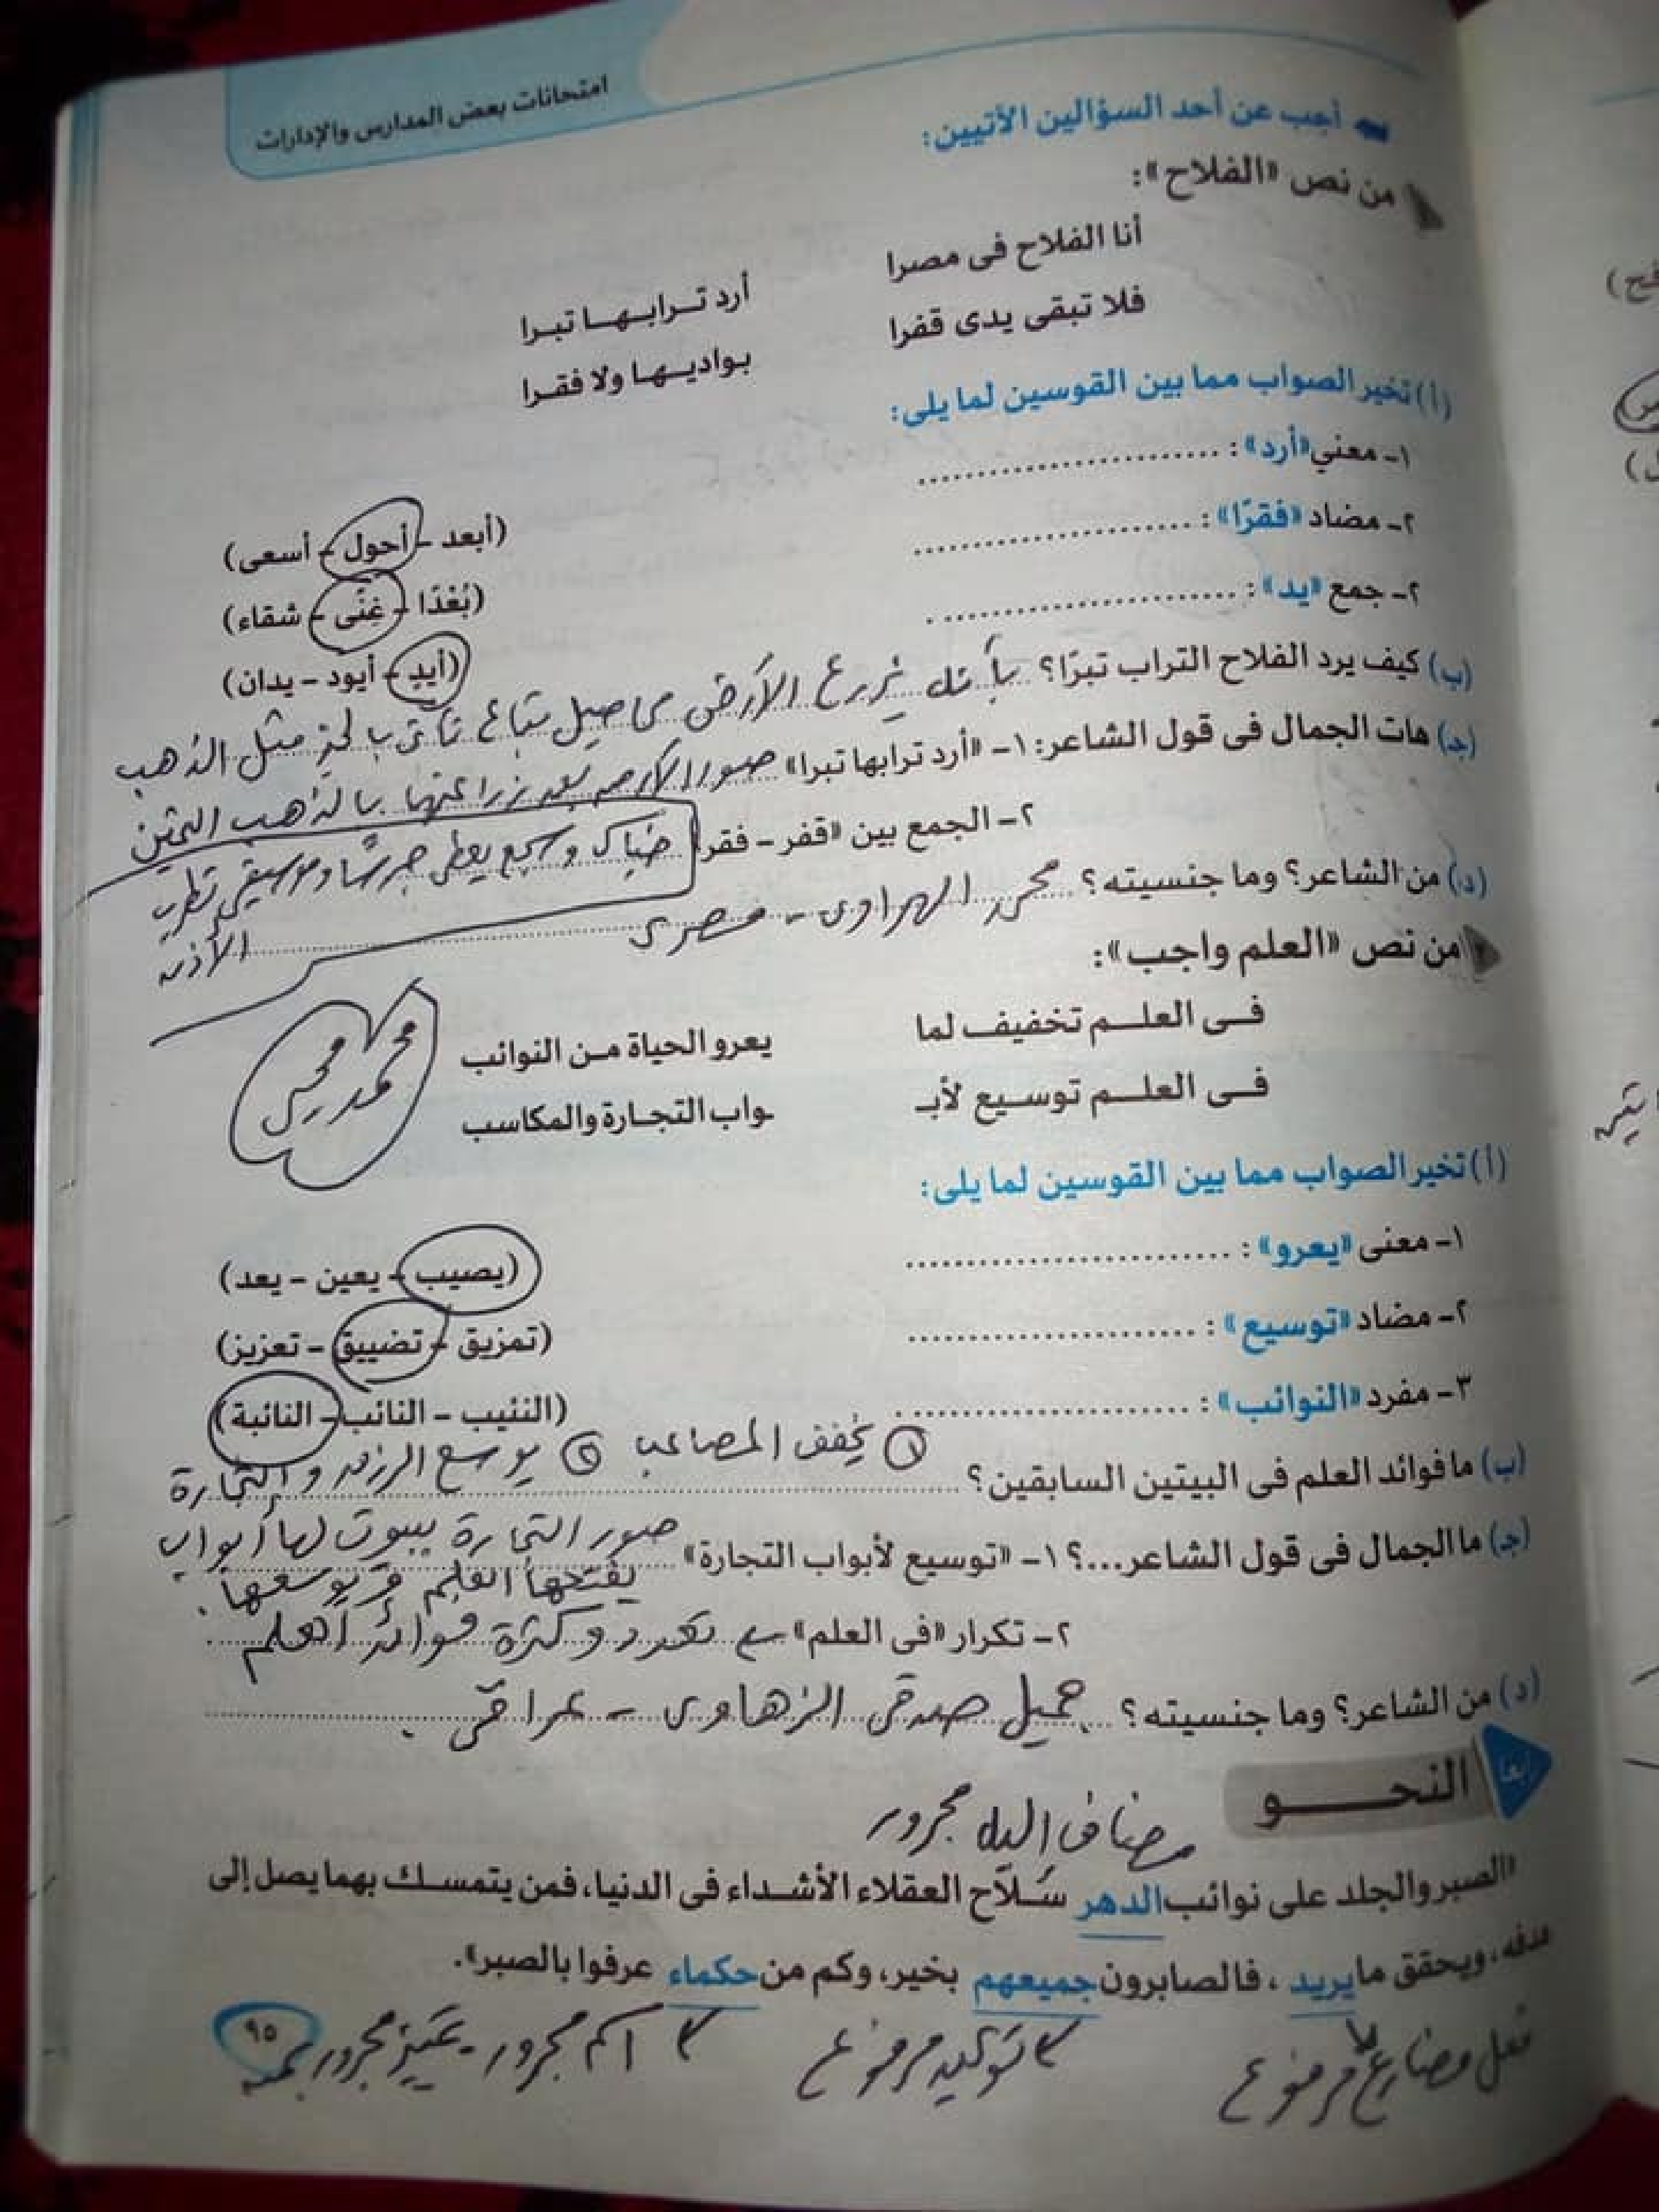 امتحانات بعض المدارس والإدارات
أجب عن أحد السؤالين الآتيين:
من نص «الفلاح»:
أنا الفلاح فى مصرا أرد ترابها تبرا
فلا تبقى يدى قفرا بواديها ولا فقرا
(أ) تخير الصواب مما بين القوسين لما يلى:
١- معني «أرد»: (أبعد - أحول - أسعى)
٢- مضاد «فقرًا»: (بُعْدًا - غنًى - شقاء)
٢- جمع «يد»: (أيدٍ - أيود - يدان)
(ب) كيف يرد الفلاح التراب تبرًا؟ بأنه يزرع الأرض محاصيل تباع مثل الذهب
(جـ) هات الجمال فى قول الشاعر: ١- «أرد ترابها تبرا» صور الأرض بعد زراعتها بالذهب الثمين
٢- الجمع بين «قفر - فقر» وسجع يعطى جرسًا وموسيقى تطرب
الأذن
(د) من الشاعر؟ وما جنسيته؟ محمد الهراوى - مصرى
من نص «العلم واجب»:
فى العلم تخفيف لما يعرو الحياة من النوائب
فى العلم توسيع لأبـ ـواب التجارة والمكاسب
محمد محيى
(أ) تخير الصواب مما بين القوسين لما يلى:
١- معنى «يعرو»: (يصيب - يعين - يعد)
٢- مضاد «توسيع»: (تمزيق - تضييق - تعزيز)
٣- مفرد «النوائب»: (النئيب - النائب - النائبة)
(ب) ما فوائد العلم فى البيتين السابقين؟ ① يخفف المصاعب ② يوسع الرزق والتجارة
(جـ) ما الجمال فى قول الشاعر...؟ ١- «توسيع لأبواب التجارة» صور التجارة ببيوت لها أبواب
يفتحها العلم ويوسعها.
٢- تكرار «فى العلم» تعدد وكثرة فوائد العلم
(د) من الشاعر؟ وما جنسيته؟ جميل صدقى الزهاوى - عراقى.
رابعا النحو
مضاف إليه مجرور
«الصبر والجلد على نوائب الدهر سَلاّح العقلاء الأشداء فى الدنيا، فمن يتمسك بهما يصل إلى
هدفه، ويحقق ما يريد، فالصابرون جميعهم بخير، وكم من حكماء عرفوا بالصبر».
فعل مضارع مرفوع توكيد مرفوع اسم مجرور - تمييز مجرور بمن
٩٥